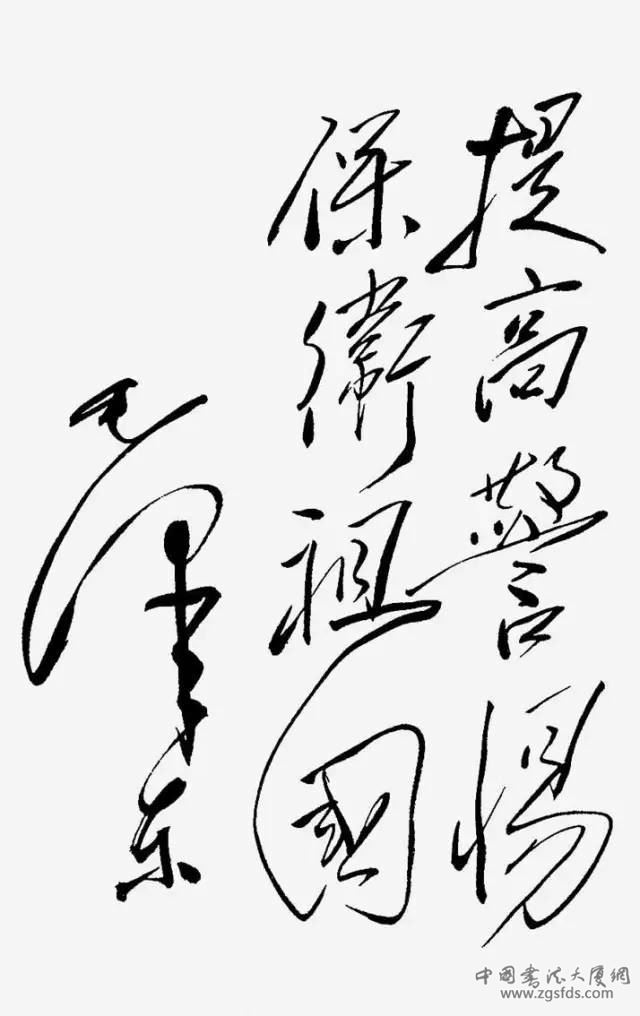 提高警惕
保衛祖國
毛泽东
中国书法大厦網
www.zgsfds.com